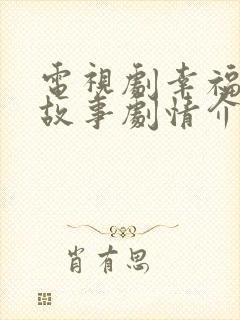 電視劇幸福
故事劇情介
肖有思